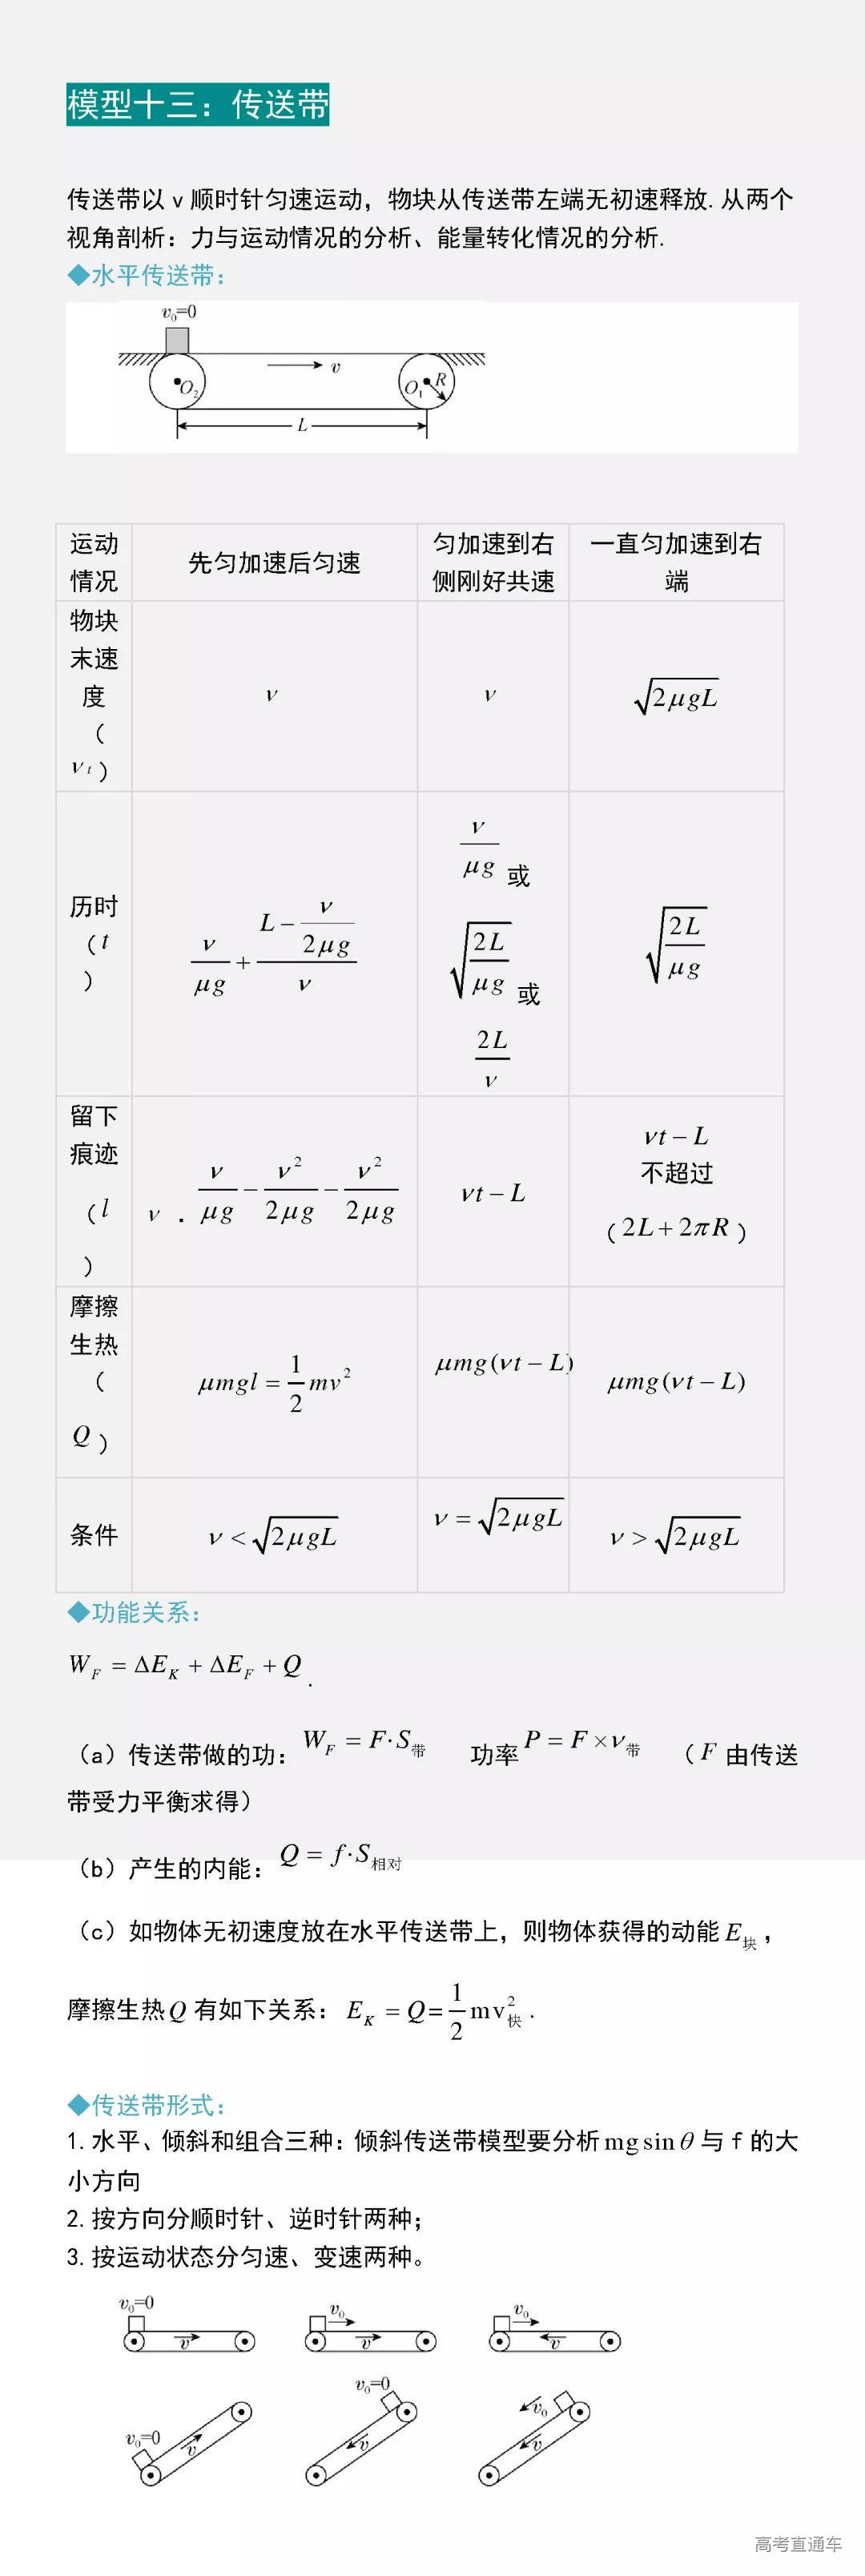 模型十三：传送带
传送带以 v 顺时针匀速运动，物块从传送带左端无初速释放. 从两个
视角剖析：力与运动情况的分析、能量转化情况的分析.
◆水平传送带：
v₀=0
v
O₂
O₁
R
L
运动
情况
先匀加速后匀速
匀加速到右
侧刚好共速
一直匀加速到右
端
物块
末速
度
（
v_t）
v
v
√(2μgL)
历时
（t
）
v/(μg) + (L − v/(2μg))/v
v/(μg) 或
√(2L/(μg)) 或
2L/v
√(2L/(μg))
留下
痕迹
（l
）
v · v/(μg) − v²/(2μg) − v²/(2μg)
vt − L
vt − L
不超过
（2L+2πR）
摩擦
生热
（
Q）
μmgl = 1/2 mv²
μmg(vt − L)
μmg(vt − L)
条件
v < √(2μgL)
v = √(2μgL)
v > √(2μgL)
◆功能关系：
W_F = ΔE_K + ΔE_F + Q .
（a）传送带做的功：W_F = F·S带 功率 P = F × v带 （F 由传送
带受力平衡求得）
（b）产生的内能：Q = f·S相对
（c）如物体无初速度放在水平传送带上，则物体获得的动能 E块，
摩擦生热 Q 有如下关系：E_K = Q = 1/2 mv²快 .
◆传送带形式：
1. 水平、倾斜和组合三种：倾斜传送带模型要分析 mg sin θ 与 f 的大
小方向
2. 按方向分顺时针、逆时针两种；
3. 按运动状态分匀速、变速两种。
v₀=0
v
v₀
v
v₀
v
v₀=0
v
v₀=0
v
v₀
v
高考直通车